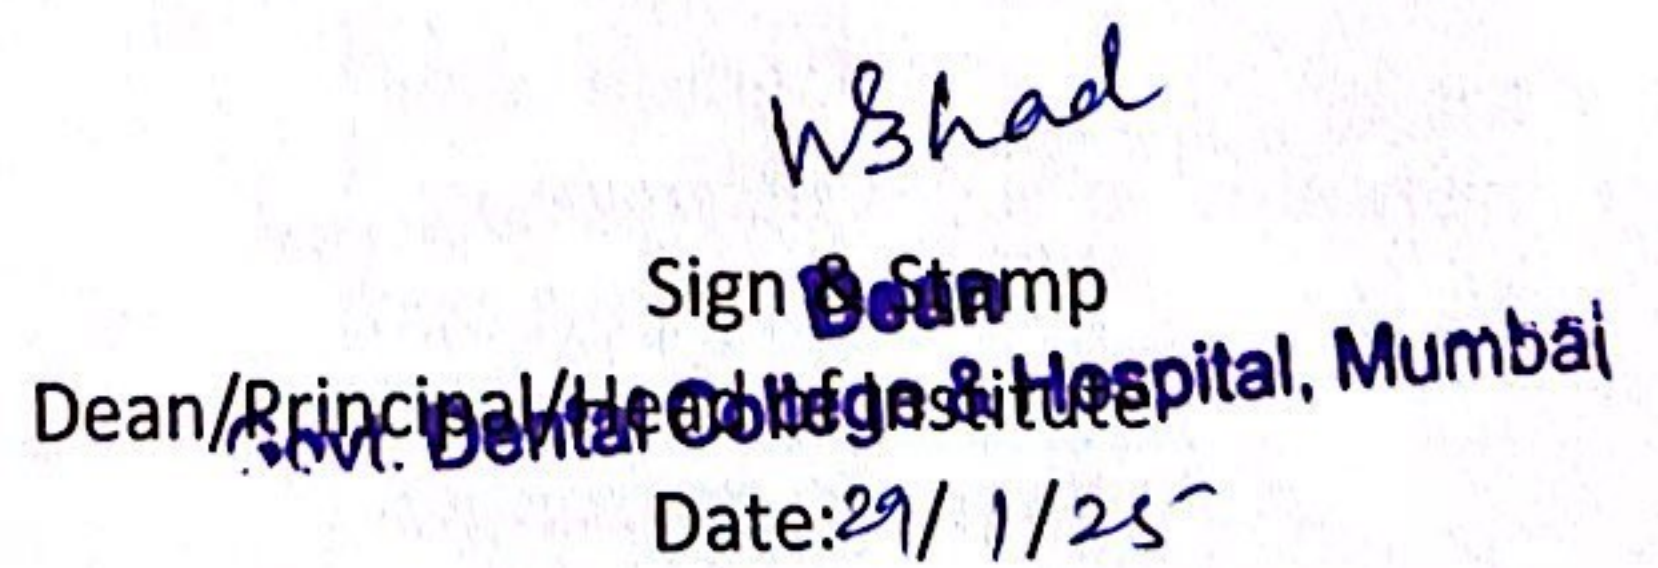 Sign & Stamp
Dean
Dean/Principal/Head of Institute
Govt. Dental College & Hospital, Mumbai
Date:29/1/25